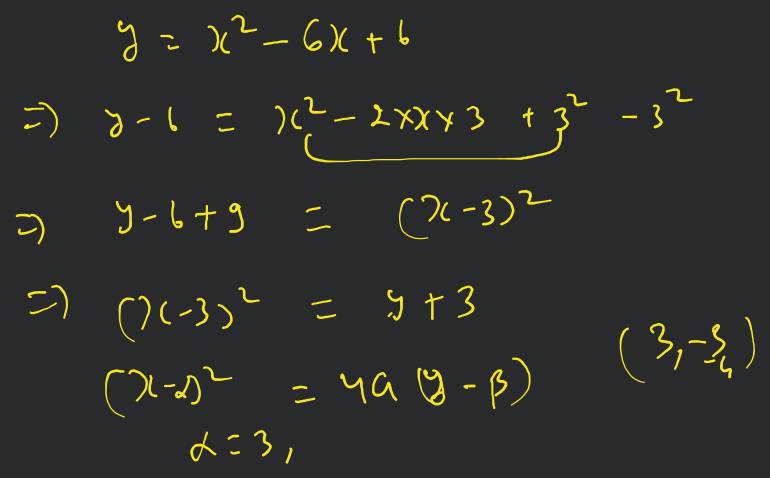 y = x² - 6x + 6
⇒ y - 6 = x² - 2×x×3 + 3² - 3²
⇒ y - 6 + 9 = (x - 3)²
⇒ (x - 3)² = y + 3
(x - α)² = 4a (y - β)
α = 3,
(3, -3